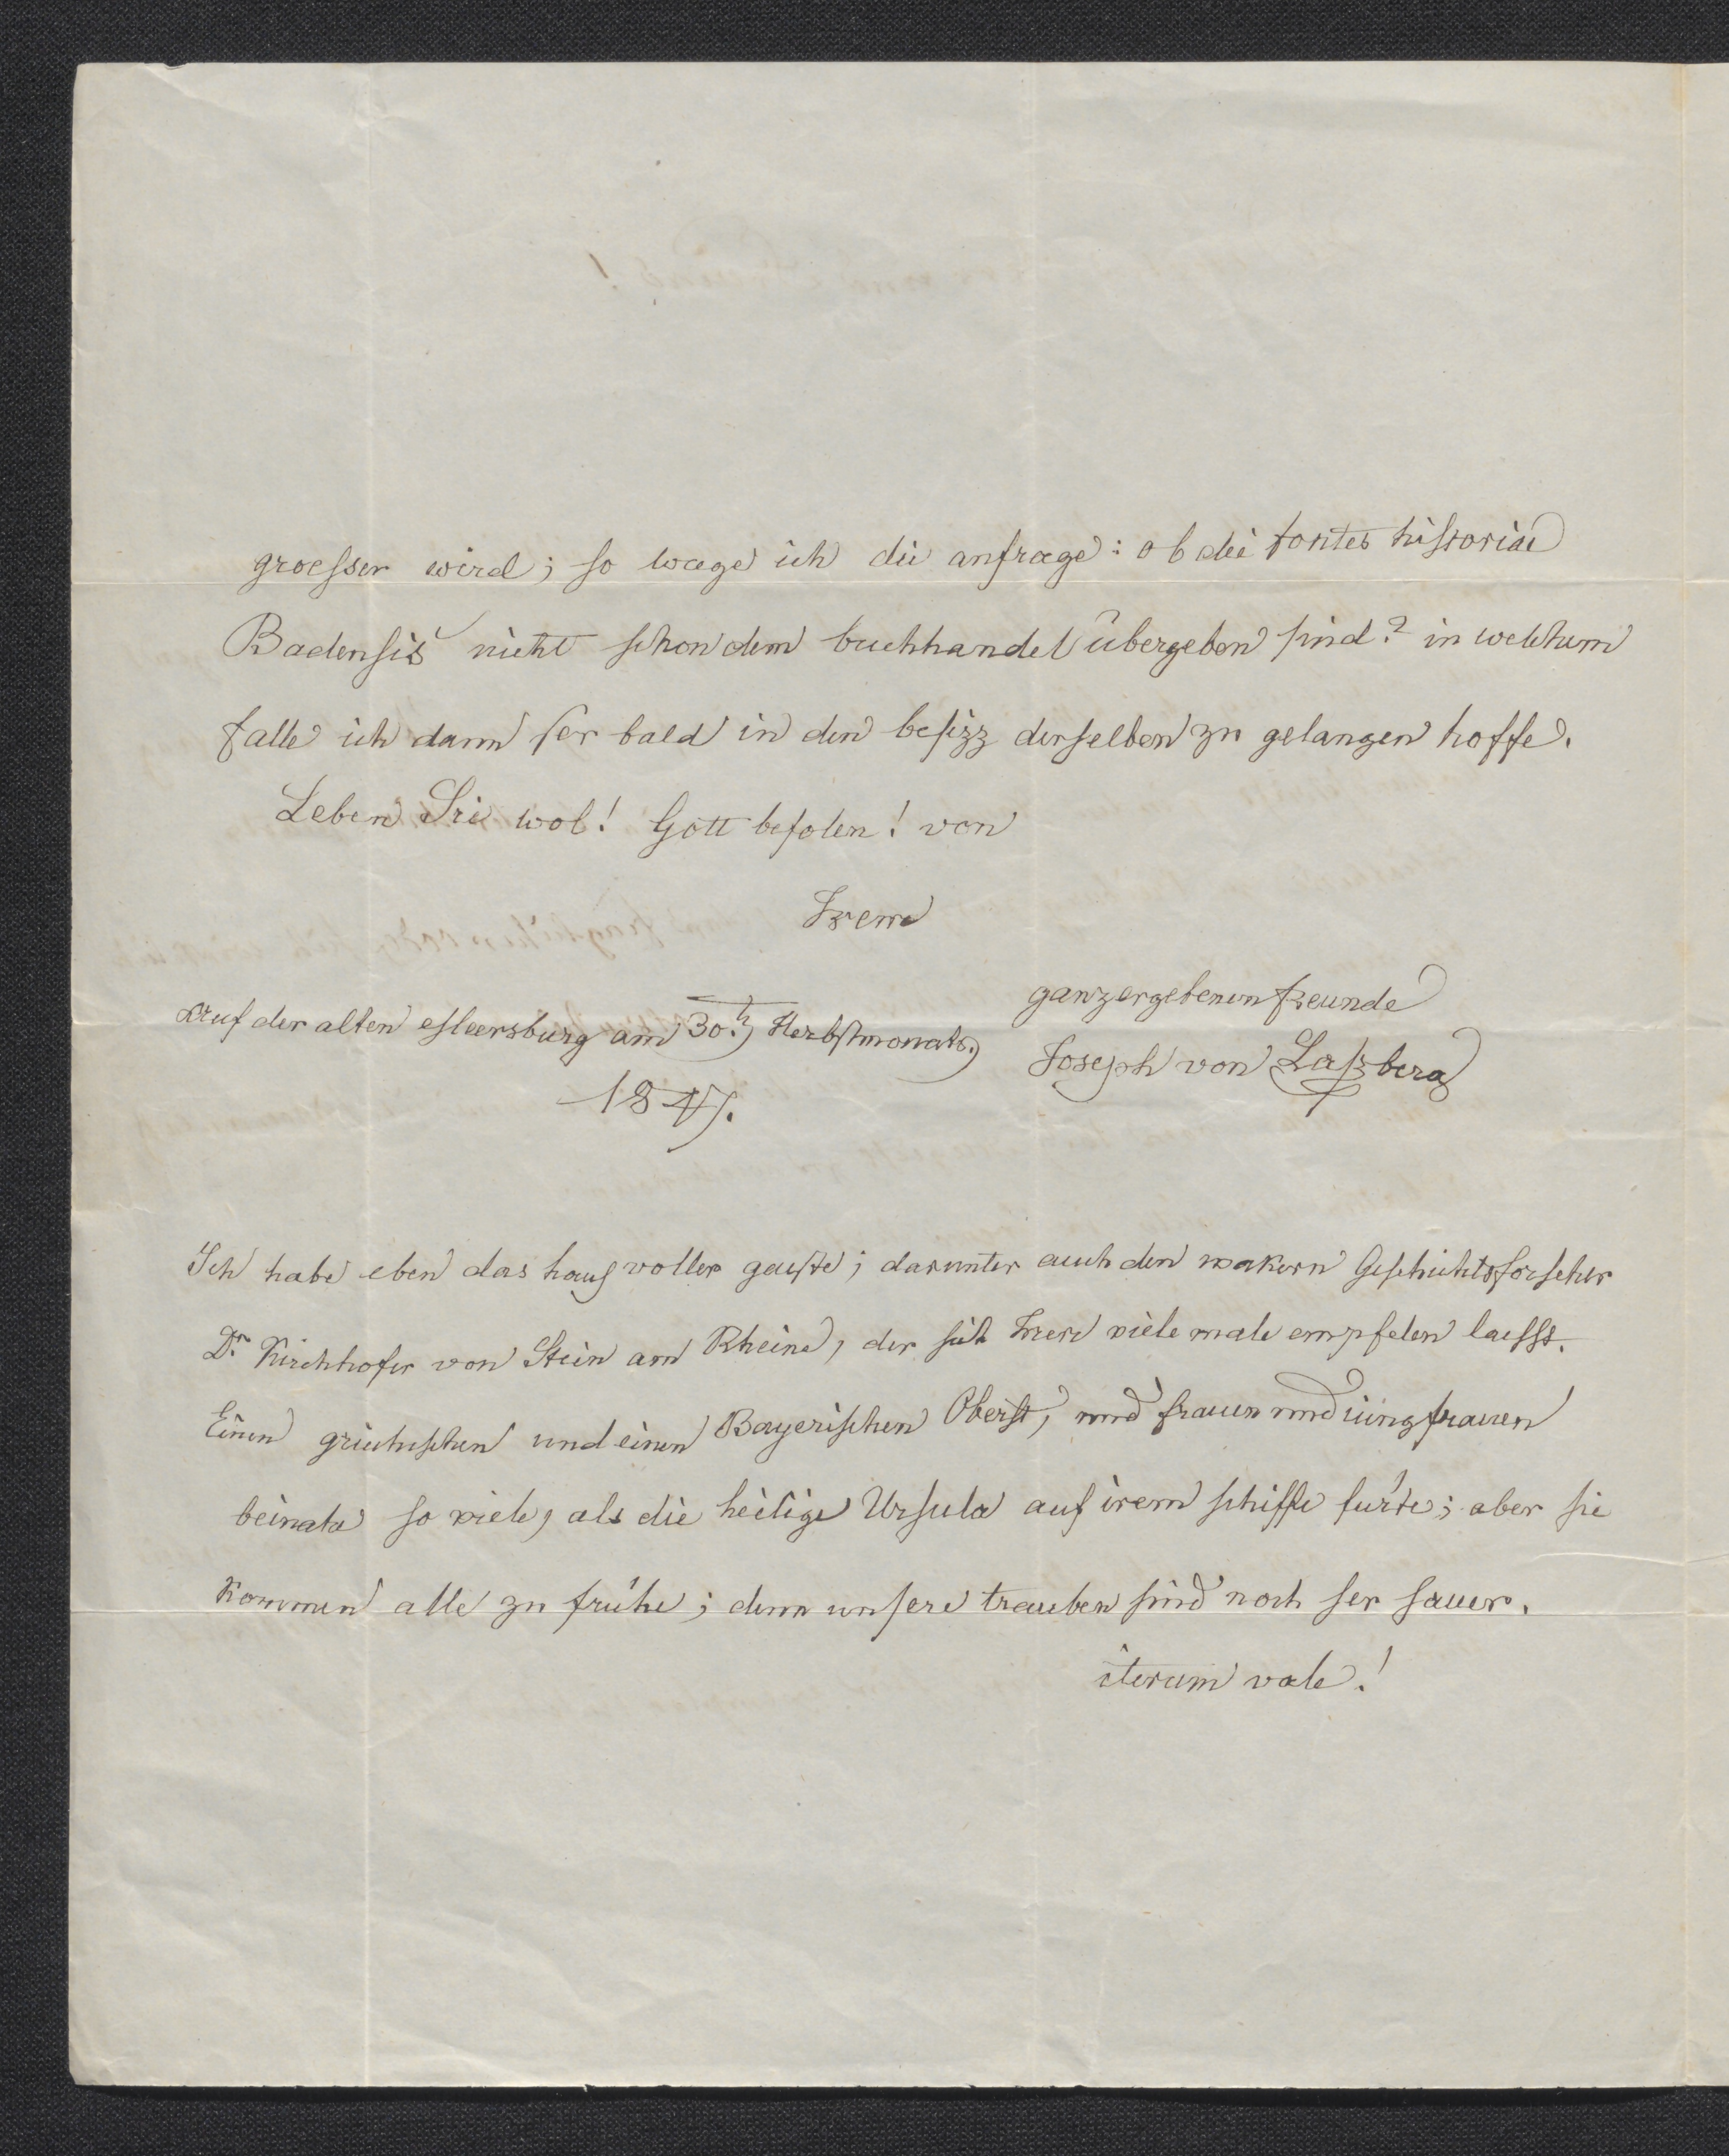 groesser wird; so wage ich die anfrage: ob die fontes historiae
Badensis nicht schon dem buchhandel übergeben sind? in welchem
falle ich dann ser bald in den besizz derselben zu gelangen hoffe.
Leben Sie wol! Gott befolen! von
Irem
ganz ergebenen freunde
Auf der alten Meersburg am 30.t Herbstmonats.
Joseph von Laßberg
1847.
Ich habe eben das haus voller gaeste; darunter auch den wakern Geschichtsforscher
Dr. Kirchhofer von Stein am Rheine, der sich Inen viele male empfelen laesst.
Einen griechischen und einen Bayerischen Oberst, und frauen und iungfrauen
beinahe so viele, als die heilige Ursula auf irem schiffe fürte; aber sie
kommen alle zu frühe; denn unsere trauben sind noch ser sauer.
iterum vale!